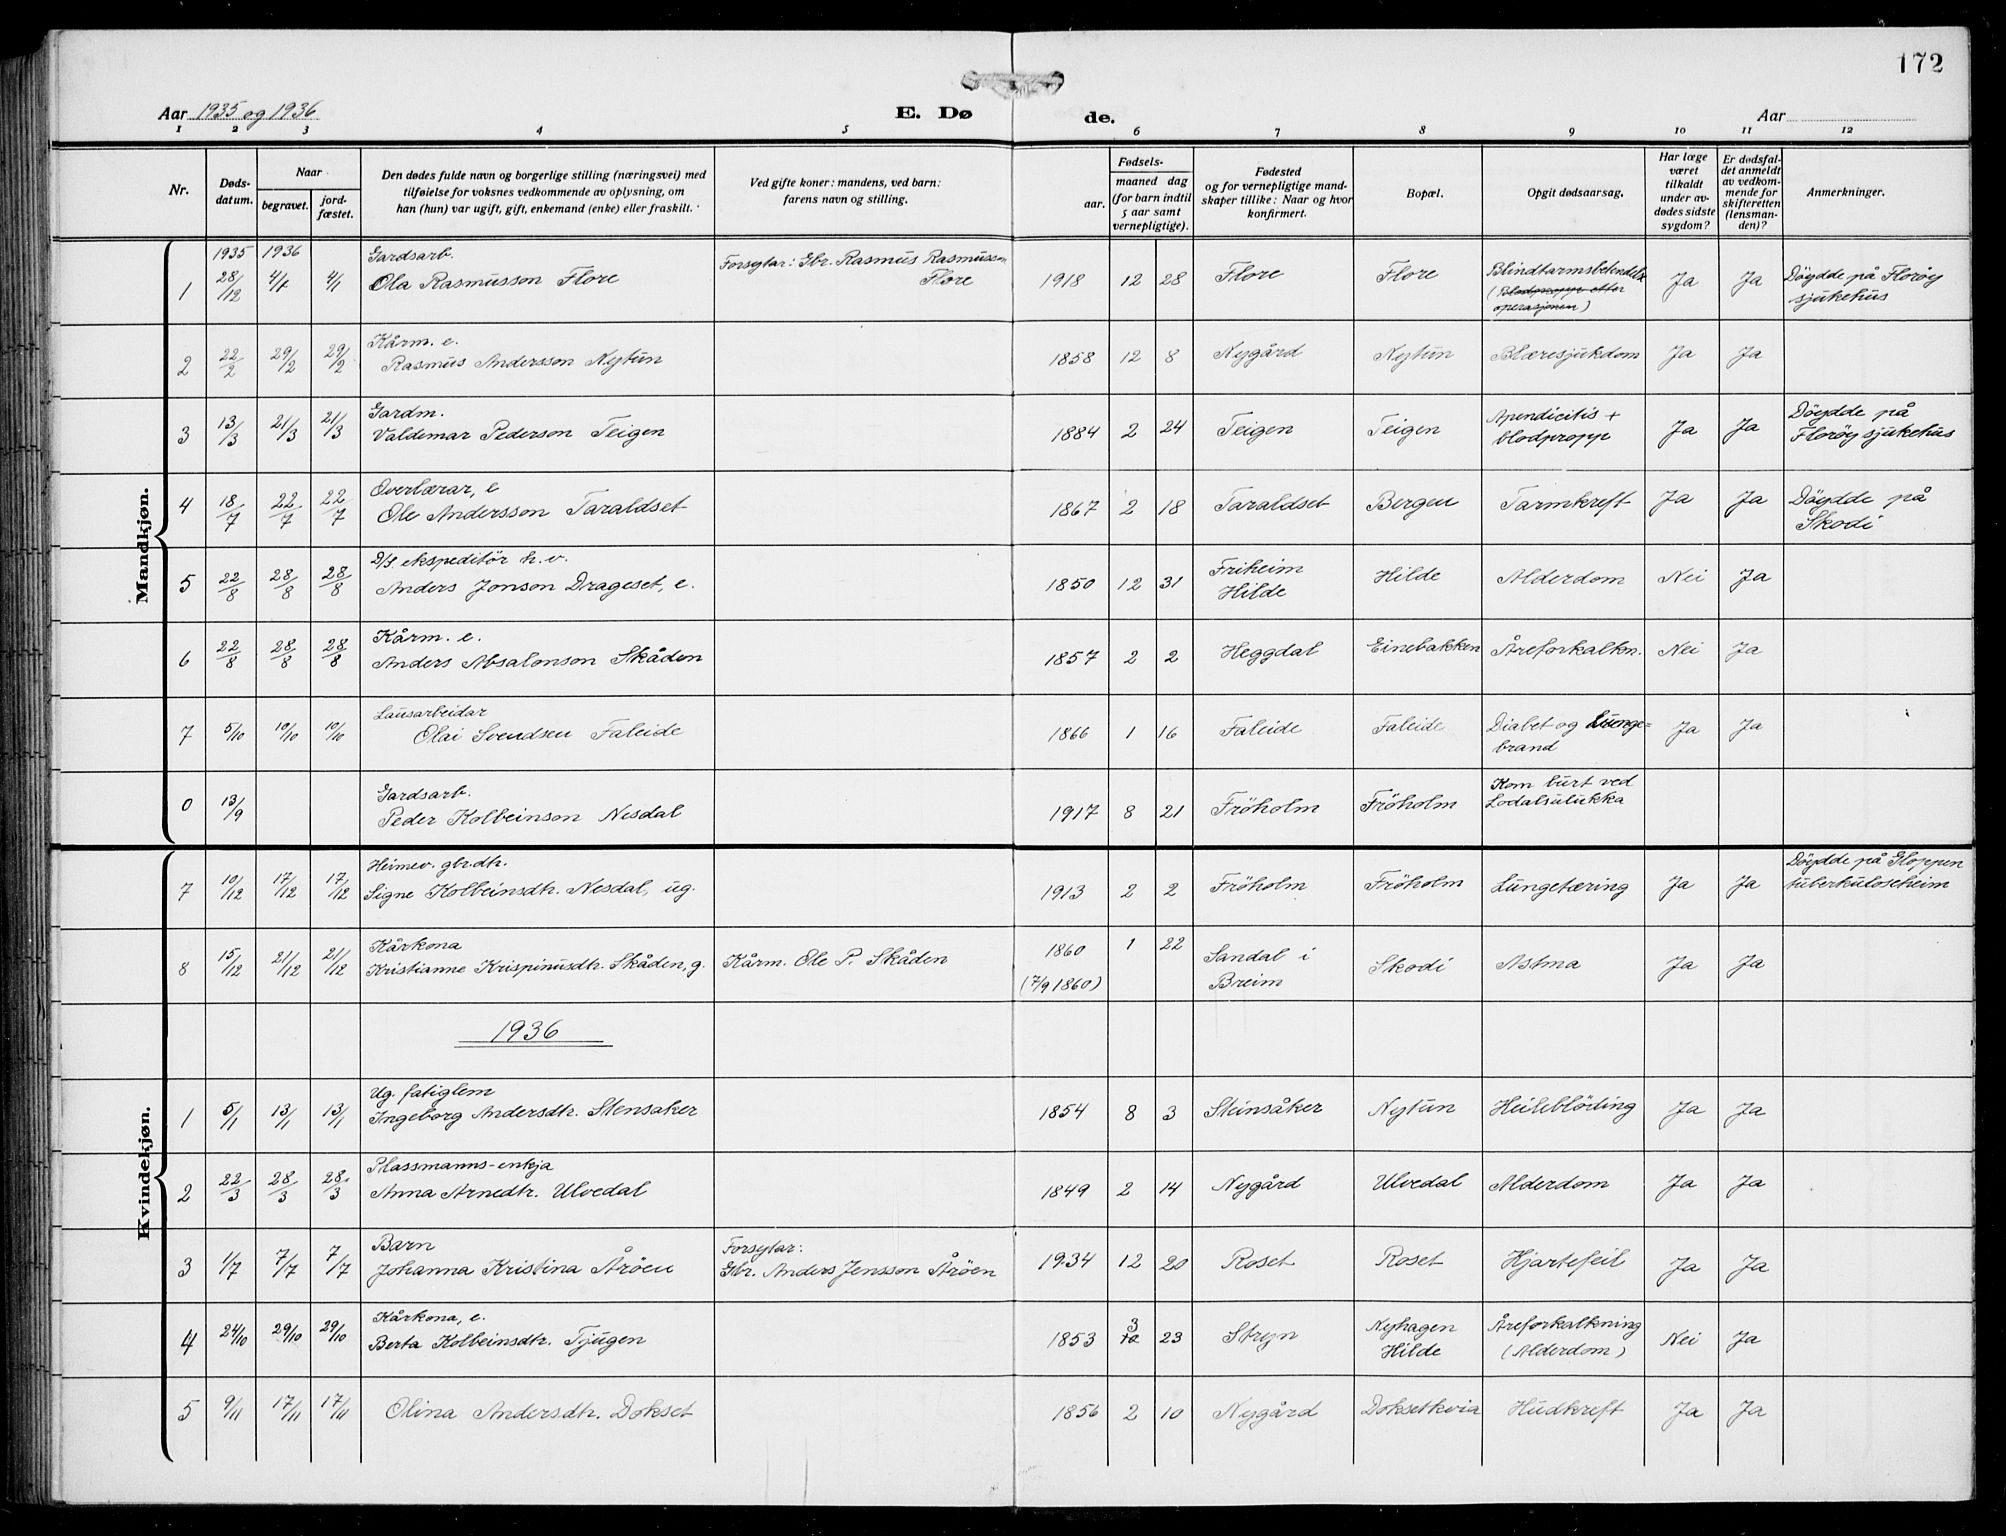 172
Aar 1935 og 1936 E. Dø de. Aar
1 2 3 4 5 6 7 8 9 10 11 12
Nr.
Døds-
datum.
Naar
begravet.
jord-
fæstet.
Den dødes fulde navn og borgerlige stilling (næringsvei) med
tilføielse for voksnes vedkommende av oplysning, om
han (hun) var ugift, gift, enkemand (enke) eller fraskilt.
Ved gifte koner: mandens, ved barn:
farens navn og stilling.
Fødsels-
aar.
maaned dag
(for barn indtil
5 aar samt
vernepligtige).
Fødested
og for vernepligtige mand-
skaper tillike: Naar og hvor
konfirmert.
Bopæl.
Opgit dødsaarsag.
Har læge
været
tilkaldt
under av-
dødes sidste
sygdom?
Er dødsfal-
det anmeldt
av vedkom-
mende for
skifteretten
(lensman-
den)?
Anmerkninger.
Mandkjøn.
1935 1936 Gardsarb.
1 28/12 4/1 4/1 Ola Rasmusson Flore Forsytar: Gbr. Rasmus Rasmusson
Flore 1918 12 28 Flore Flore Blindtarmsbetendelse
(Blodpropp etter
operasjonen) Ja Ja Döydde på Floröy
sjukehus
Kårm. e.
2 22/2 29/2 29/2 Rasmus Andersson Nytun 1858 12 8 Nygård Nytun Blæresjukdom Ja Ja
Gardm.
3 13/3 21/3 21/3 Valdemar Pederson Teigen 1884 2 24 Teigen Teigen Apendicitis +
blodpropp Ja Ja Döydde på
Floröy sjukehus
Overlærar, e
4 18/7 22/7 22/7 Ole Andersson Taraldset 1867 2 18 Taraldset Bergen Tarmkreft Ja Ja Döydde på
Skodi
D/s. ekspeditör h.v.
5 22/8 28/8 28/8 Anders Jonson Drageset, e. 1850 12 31 Friheim
Hilde Hilde Alderdom Nei Ja
Kårm. e.
6 22/8 28/8 28/8 Anders Absalonson Skåden 1857 2 2 Heggdal Einebakken Åreforkalkn. Nei Ja
Lausarbeidar
7 5/10 10/10 10/10 Olai Svendsen Faleide 1866 1 16 Faleide Faleide Diabet og Lunge=
brand Ja Ja
Gardsarb.
0 13/9 Peder Kolbeinson Nesdal 1917 8 21 Fröholm Fröholm Kom burt ved
Lodalsulukka
Kvindekjøn.
Heimev. gbr.dtr.
7 10/12 17/12 17/12 Signe Kolbeinsdtr. Nesdal, ug. 1913 2 2 Fröholm Fröholm Lungetæring Ja Ja Döydde på Gloppen
tuberkuloseheim
Kårkona
8 15/12 21/12 21/12 Kristianne Krispinusdtr. Skåden, g. Kårm. Ole P. Skåden 1860 1 22
(7/9 1860) Sandal i
Breim Skodi Astma Ja Ja
1936
Ug. fatiglem
1 5/1 13/1 13/1 Ingeborg Andersdtr. Stensaker 1854 8 3 Steinsåker Nytun Heileblöding Ja Ja
Plassmanns-enkja
2 22/3 28/3 28/3 Anna Arnedtr. Ulvedal 1849 2 14 Nygård Ulvedal Alderdom Ja Ja
Barn Forsytar:
3 1/7 7/7 7/7 Johanna Kristina Åröen Gbr. Anders Jensson Åröen 1934 12 20 Roset Roset Hjartefeil Ja Ja
Kårkona, e.
4 24/10 29/10 29/10 Berta Kolbeinsdtr. Tjugen 1853 3 10 23 Stryn Nyhagen
Hilde Åreforkalkning
(Alderdom) Nei Ja
5 9/11 17/11 17/11 Olina Andersdtr. Dokset 1856 2 10 Nygård Doksetkvia Hudkreft Ja Ja